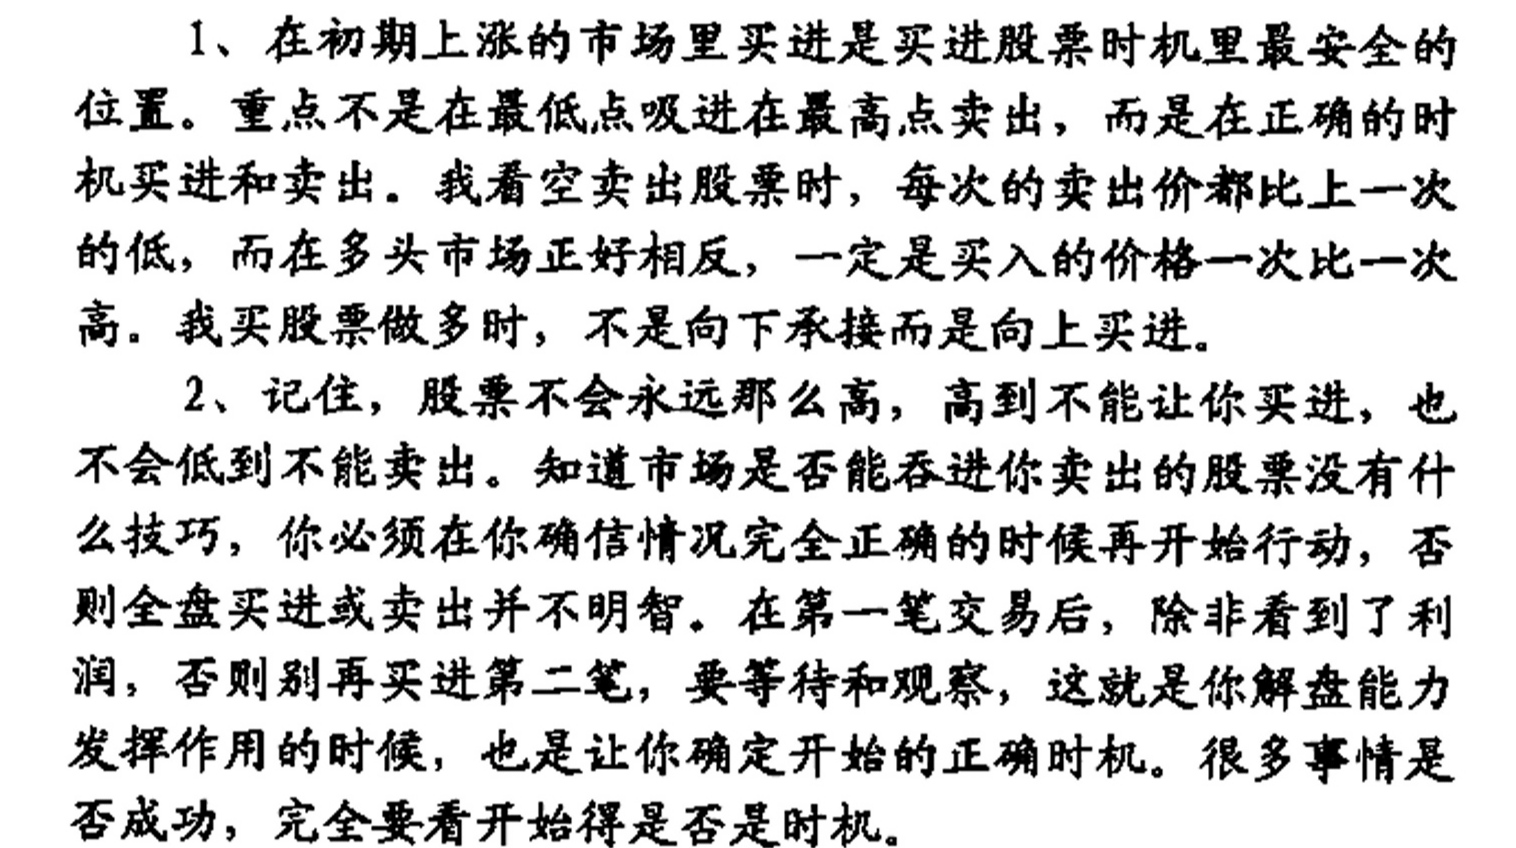 1、在初期上涨的市场里买进是买进股票时机里最安全的
位置。重点不是在最低点吸进在最高点卖出，而是在正确的时
机买进和卖出。我看空卖出股票时，每次的卖出价都比上一次
的低，而在多头市场正好相反，一定是买入的价格一次比一次
高。我买股票做多时，不是向下承接而是向上买进。
2、记住，股票不会永远那么高，高到不能让你买进，也
不会低到不能卖出。知道市场是否能吞进你卖出的股票没有什
么技巧，你必须在你确信情况完全正确的时候再开始行动，否
则全盘买进或卖出并不明智。在第一笔交易后，除非看到了利
润，否则别再买进第二笔，要等待和观察，这就是你解盘能力
发挥作用的时候，也是让你确定开始的正确时机。很多事情是
否成功，完全要看开始得是否是时机。